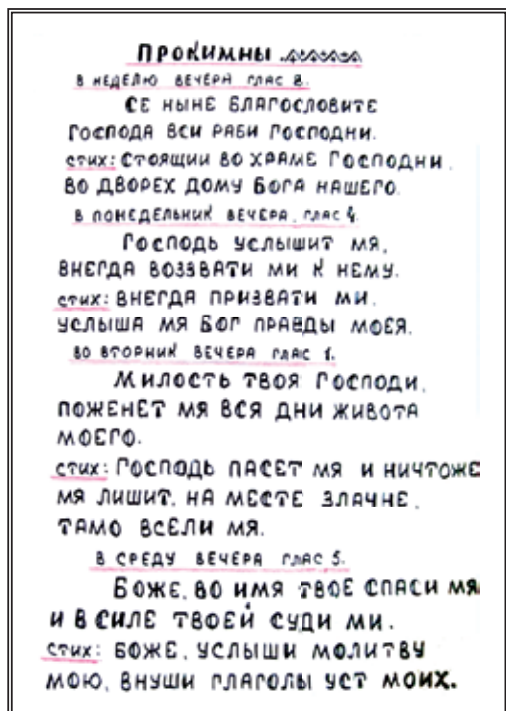 Прокимны
в неделю вечера глас 8.
Се ныне благословите
Господа вси раби Господни.
стих: Стоящии во храме Господни,
во дворех дому Бога нашего.
в понедельник вечера, глас 4.
Господь услышит мя,
внегда воззвати ми к нему.
стих: внегда призвати ми,
услыша мя Бог правды моея.
во вторник вечера глас 1.
Милость твоя Господи,
поженет мя вся дни живота
моего.
стих: Господь пасет мя и ничтоже
мя лишит, на месте злачне,
тамо всели мя.
в среду вечера глас 5.
Боже, во имя твое спаси мя
и в силе твоей суди ми.
стих: Боже, услыши молитву
мою, внуши глаголы уст моих.